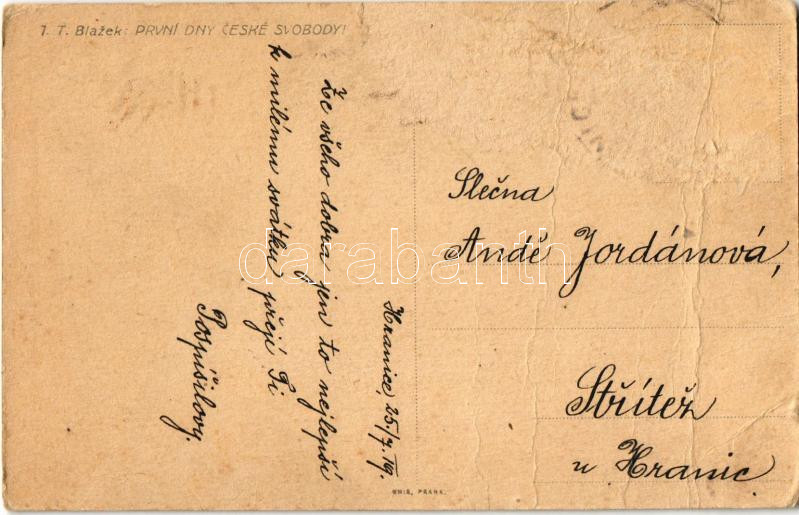 J. T. Blažek: PRVNÍ DNY ČESKÉ SVOBODY!
Hranice, 25/7. 19.
Ze všeho dobra jen to nejlepší
k milému svátku přejí Ti
Pospíšilovy.
Slečna
Andě Jordánová,
Střítež
u Hranic
UNIE, PRAHA.
darabanth